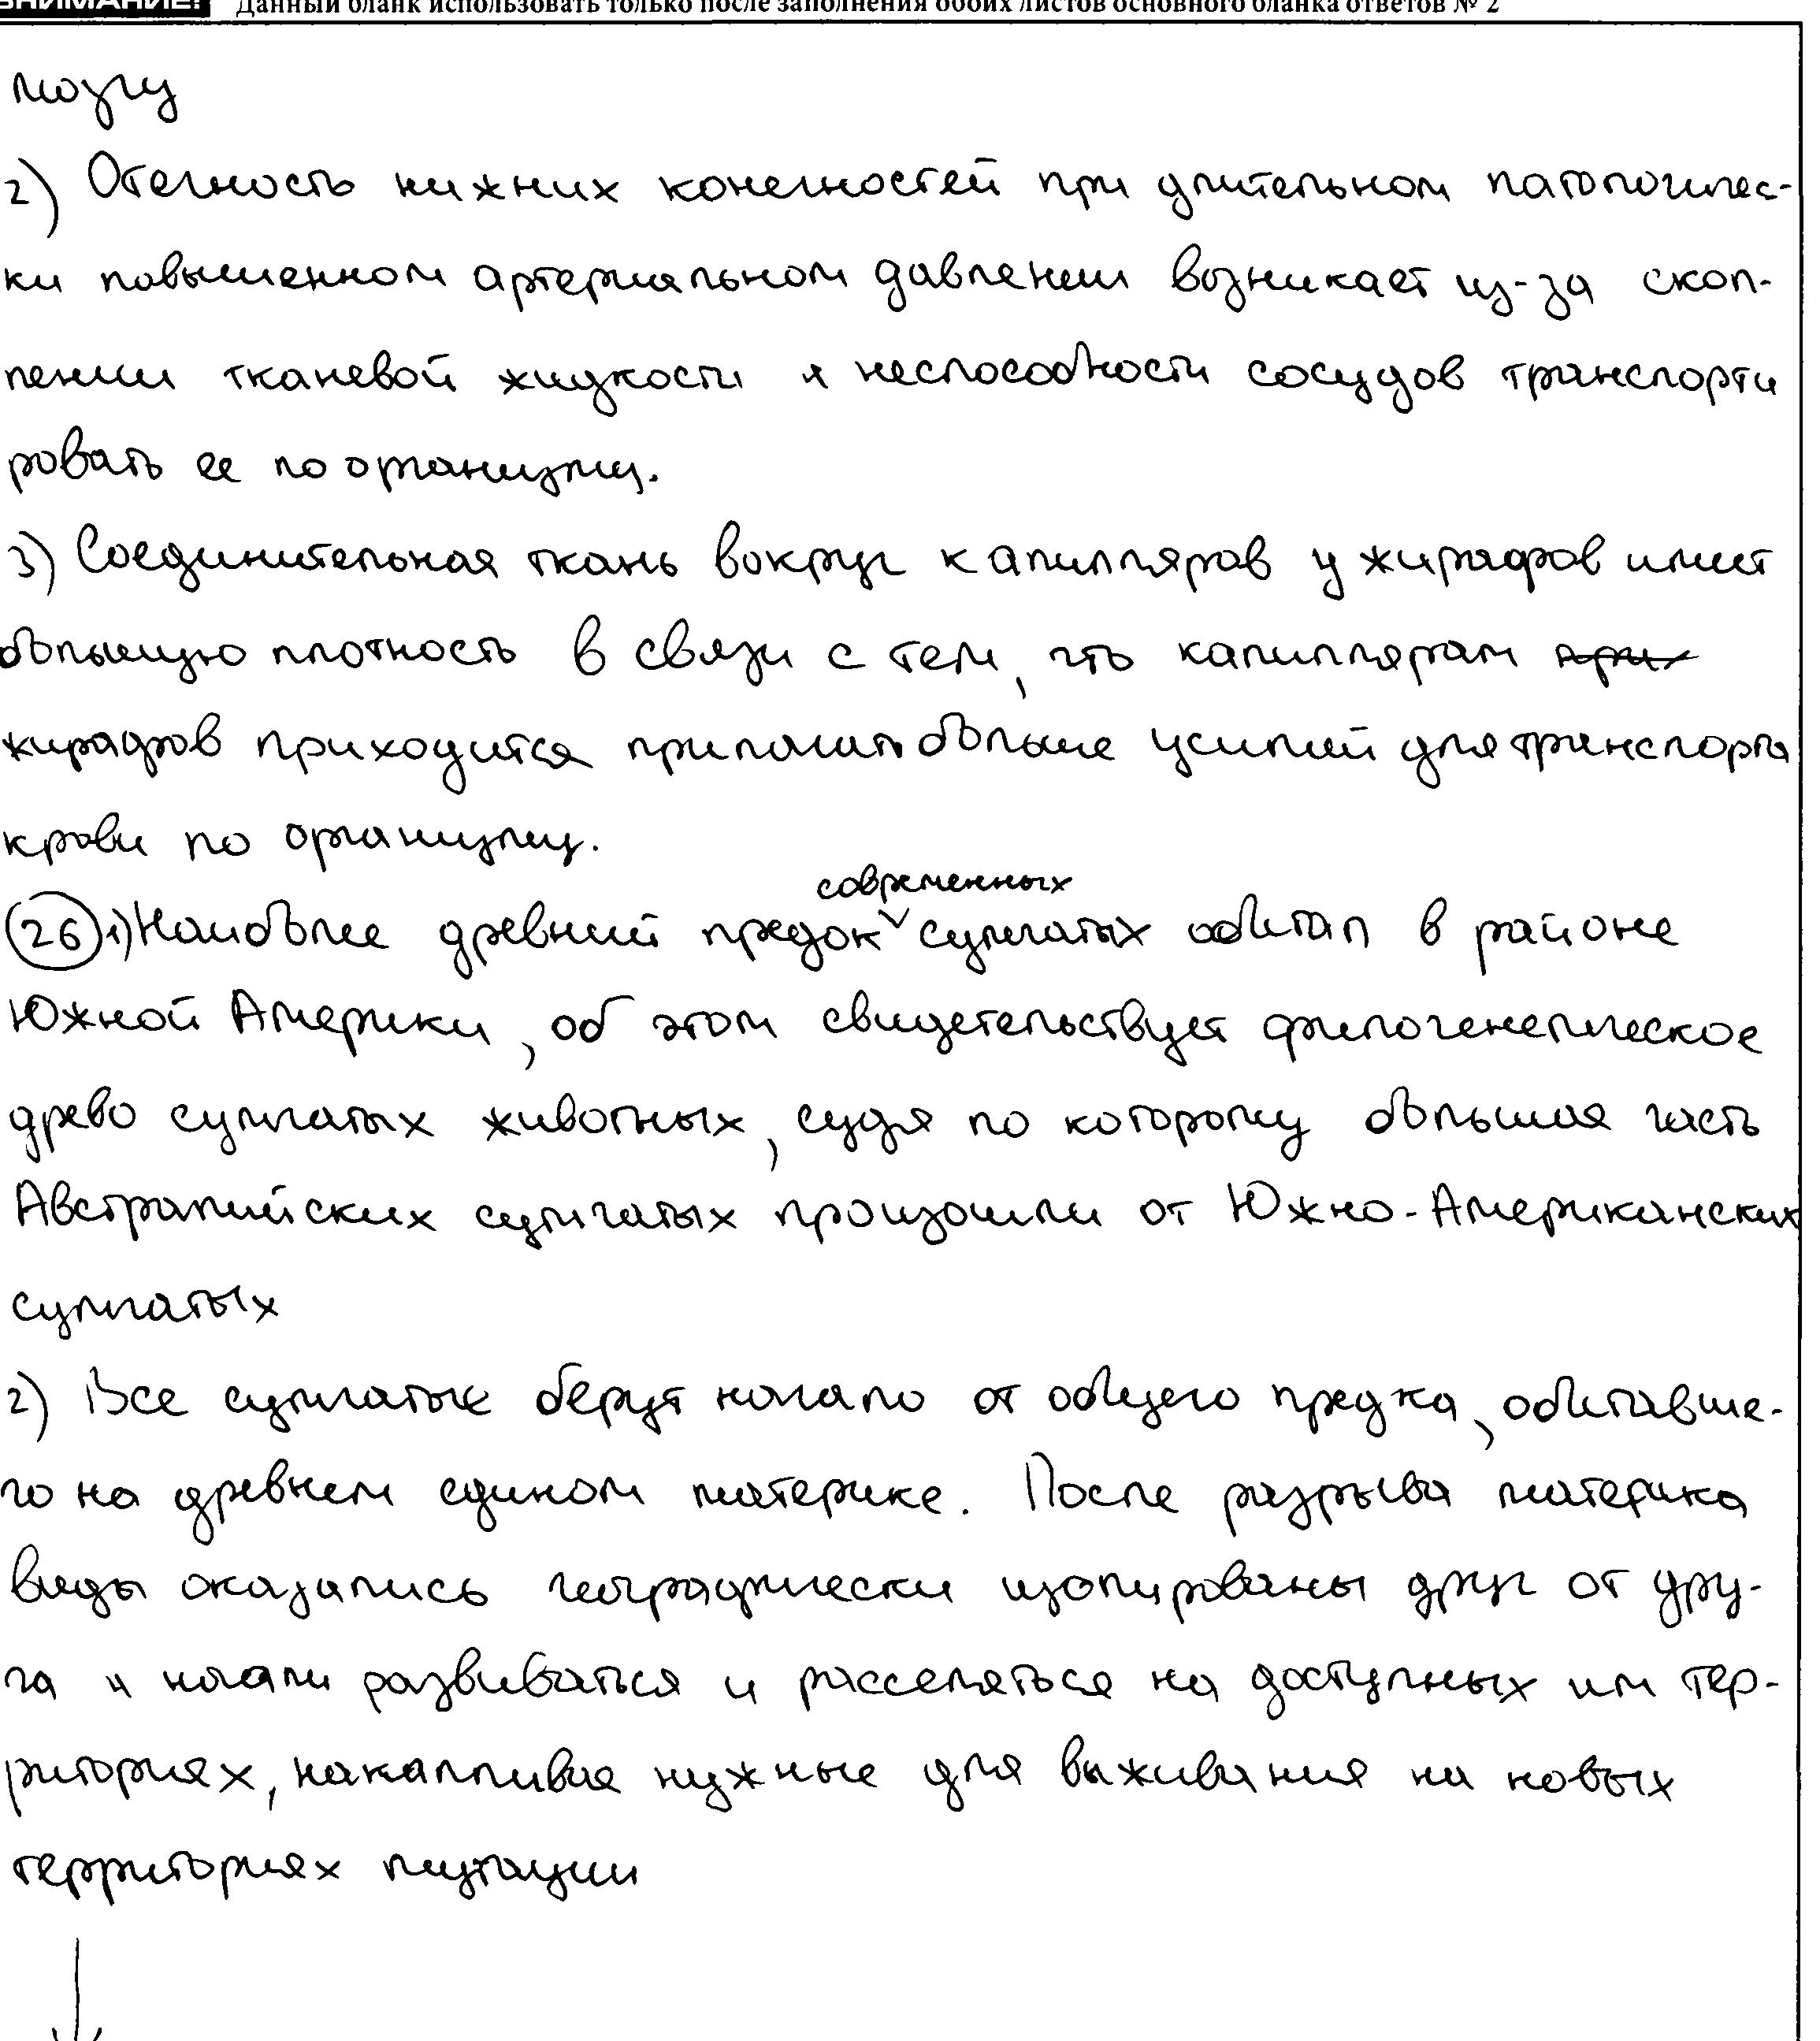 ВНИМАНИЕ! Данный бланк использовать только после заполнения обоих листов основного бланка ответов № 2
мозгу
2) Отечность нижних конечностей при длительном патологичес-
ки повышенном артериальном давлении возникает из-за скоп-
лении тканевой жидкости и неспособности сосудов транспорти
ровать ее по организму.
3) Соединительная ткань вокруг капилляров у жирафов имеет
большую плотность в связи с тем, что капиллярам при
жирафов приходится прилагать больше усилий для транспорта
крови по организму.
современных
26 1) Наиболее древний предок сумчатых обитал в районе
Южной Америки, об этом свидетельствует филогенетическое
древо сумчатых животных, судя по которому большая часть
Австралийских сумчатых произошли от Южно-Американских
сумчатых
2) Все сумчатые берут начало от общего предка, обитавше-
го на древнем едином материке. После разрыва материка
виды оказались географически изолированы друг от дру-
га и начали развиваться и расселяться на доступных им тер-
риториях, накапливая нужные для выживания на новых
территориях мутации